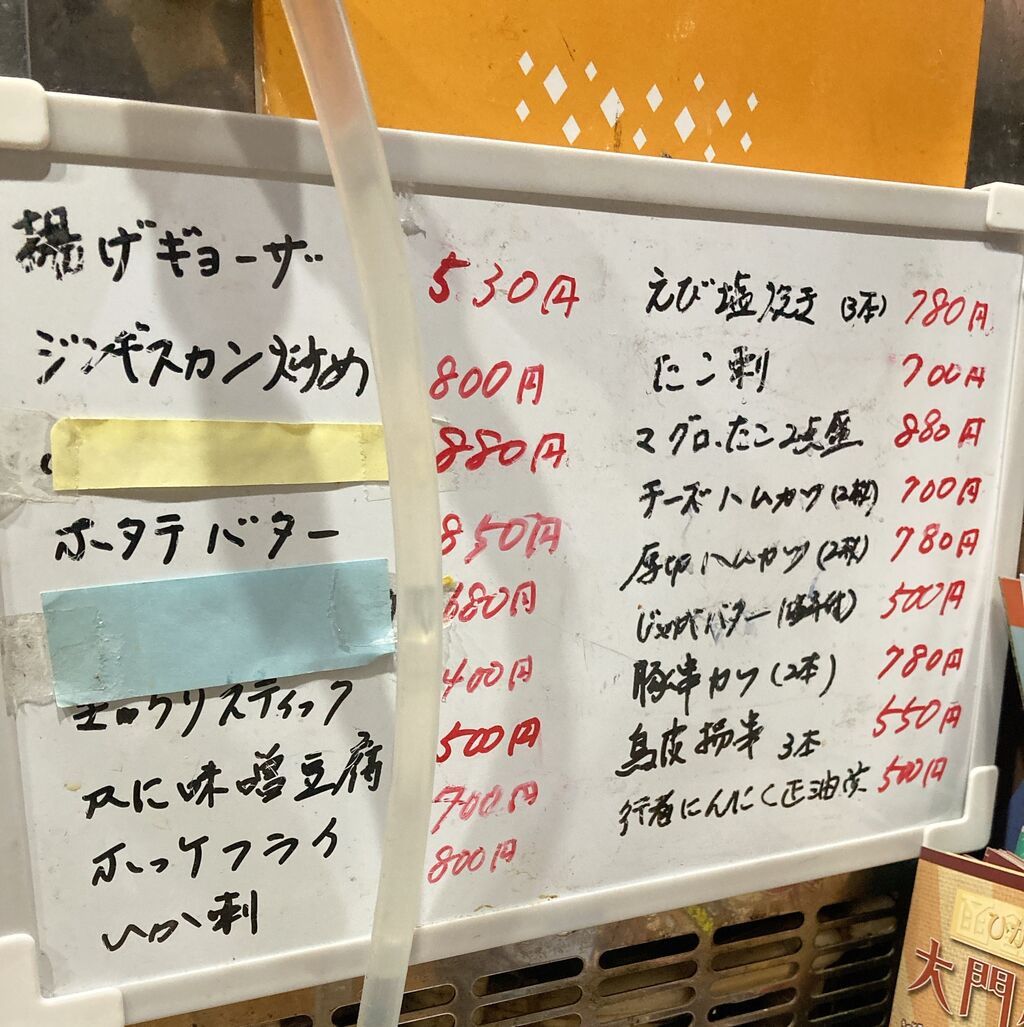 揚げギョーザ 530円
ジンギスカン炒め 800円
880円
ホタテバター 850円
680円
クリスティック 400円
カに味噌豆腐 500円
ホッケフライ 700円
いか刺 800円
えび塩焼き (3本) 780円
たこ刺 700円
マグロ、たこ2点盛 880円
チーズハムカツ(2枚) 700円
厚切ハムカツ(2枚) 780円
じゃがバター 500円
豚串カツ(2本) 780円
鳥皮揚串 3本 550円
行者にんにく正油 500円
大門